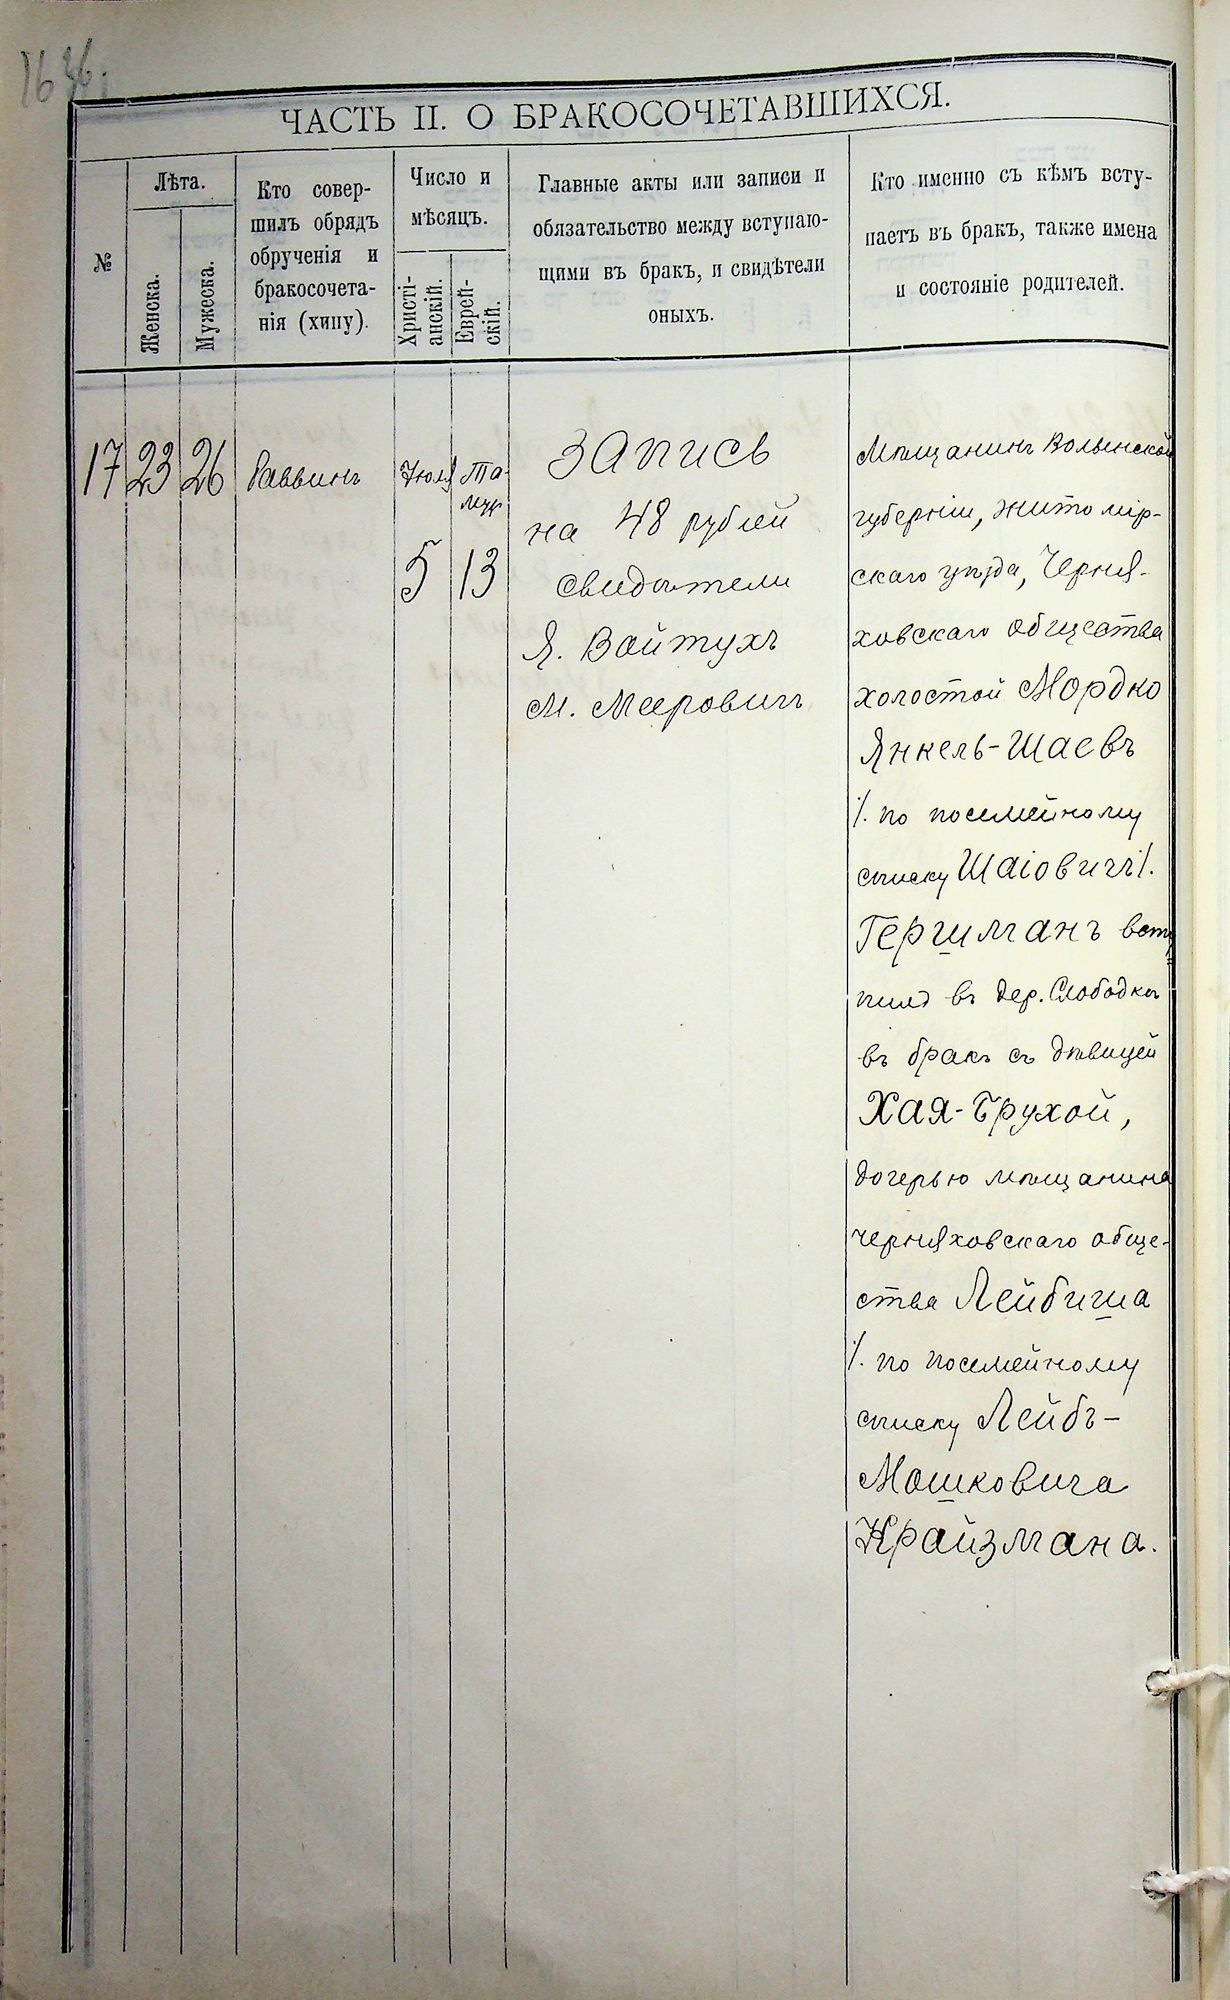 163б.
ЧАСТЬ II. О БРАКОСОЧЕТАВШИХСЯ.
№
Лѣта.
Женска.
Мужеска.
Кто совер-
шилъ обрядъ
обрученія и
бракосочета-
нія (хипу).
Число и
мѣсяцъ.
Христі-
анскій.
Еврей-
скій.
Главные акты или записи и
обязательство между вступаю-
щими въ бракъ, и свидѣтели
оныхъ.
Кто именно съ кѣмъ всту-
паетъ въ бракъ, также имена
и состояніе родителей.
17
23
26
Раввинъ
Іюля
5
Та-
муз
13
Запись
на 48 рублей
свидѣтели
Я. Войтухъ
М. Мееровичъ
Мѣщанинъ Волынской
губерніи, Житомір-
скаго уѣзда, Черня-
ховскаго общества
холостой Мордко
Янкель-Шаевъ
/. по посемейному
списку Шаіовичъ/.
Гершманъ всту
пилъ въ дер. Слободкѣ
въ бракъ съ дѣвицей
Хая-Брухой,
дочерью мѣщанина
черняховскаго обще-
ства Лейбиша
/. по посемейному
списку Лейбъ-
Мошковича
Крайзмана.